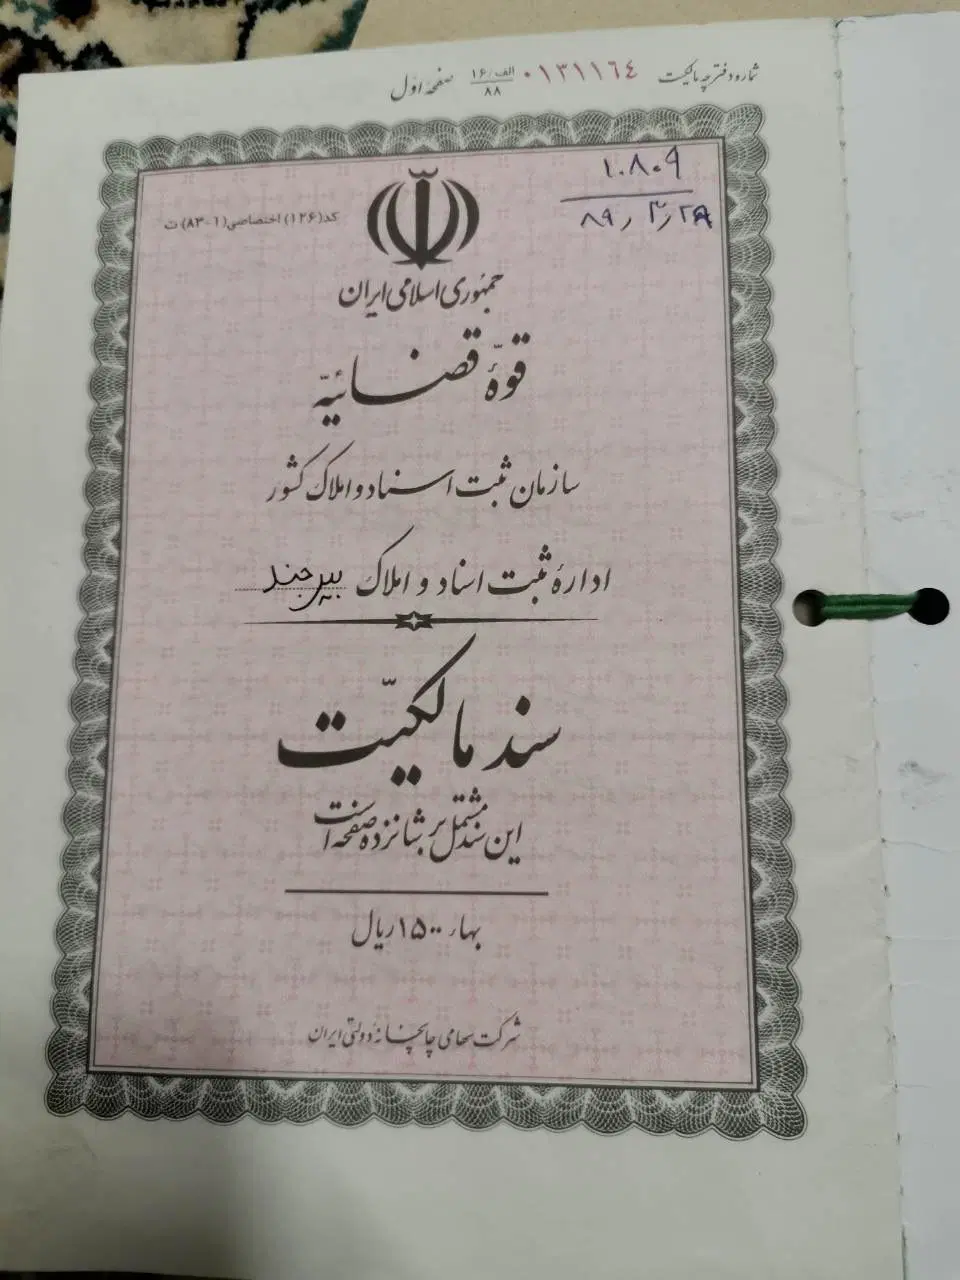 شماره دفترچه مالکیت ۰۱۳۱۱٦٤ الف/۱۶
۸۸
صفحه اول
۱۰۸۰۹
۸۹٫۲٫۲۸
کد(۱۲۶) اختصاصی(۱-۸۳) ت
جمهوری اسلامی ایران
قوّهٔ قضائیّه
سازمان ثبت اسناد و املاک کشور
ادارهٔ ثبت اسناد و املاک بیرجند
سند مالکیّت
این سند مشتمل بر شانزده صفحه است
بهاء ۱۵۰۰ ریال
شرکت سهامی چاپخانه دولتی ایران